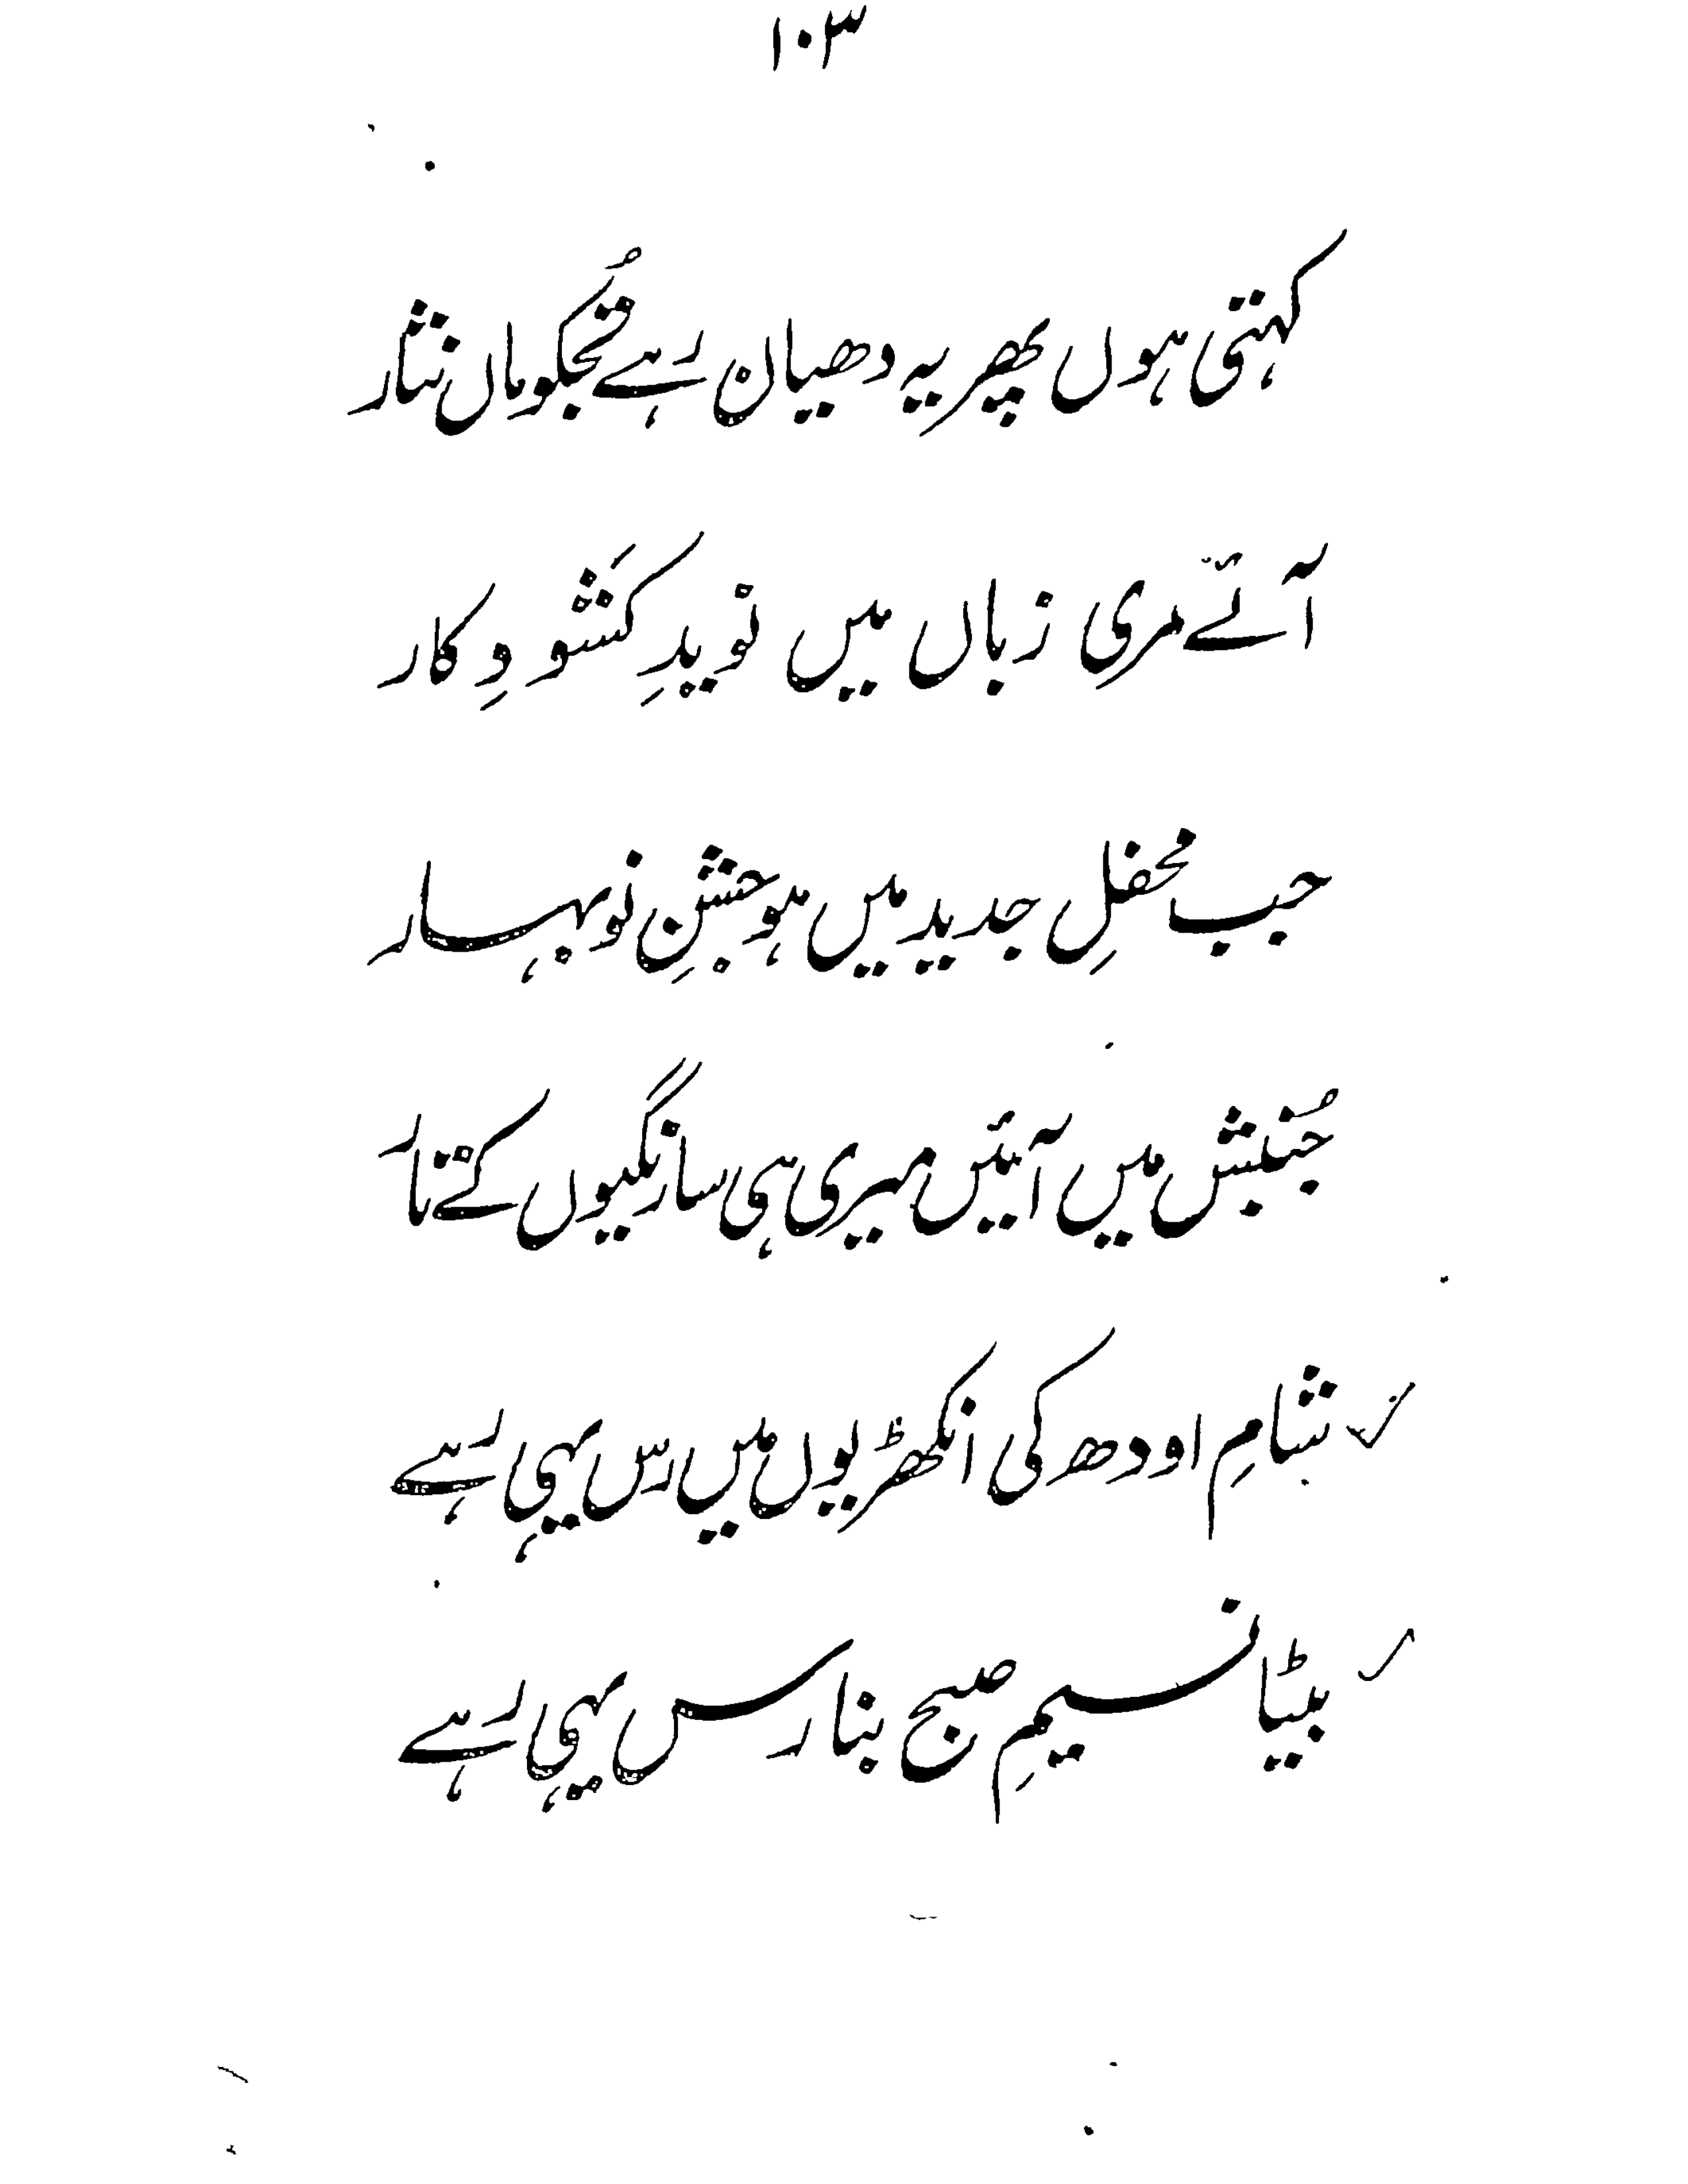 ۱۰۳
کہتی ہوں پھر یہ دھیان رہے مُجکو ماں نثار
آئے مری زباں میں نویدِ کشودِ کار
جب محفلِ جدید میں ہو جشنِ نو بہار
جُنبش میں آئیں میری ہی سارنگیوں کے تار
شامِ اودھ کی انکھڑیوں میں رس یہی رہے
بیٹا نسیمِ صبح بنارس یہی رہے